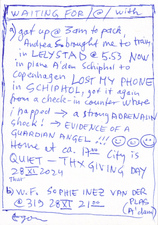 WAITING FOR /@/ with
a) got up @ 3am to pack,
Andrea S. brought me to train
in LELYSTAD @ 5.53 NOW
in plane A'dam Schiphol to
Copenhagen LOST MY PHONE
in SCHIPHOL, got it again
from a check-in counter where
i papped → a strong ADRENALIN
shock! → EVIDENCE OF A
GUARDIAN ANGEL !!!
Home at ca. 17ºº City is
QUIET - THX GIVING DAY
28 XI 2024
b) W.F. SOPHIE INEZ VAN DER
@ 31D 28 XI 21ºº PLAS
(A'dam)